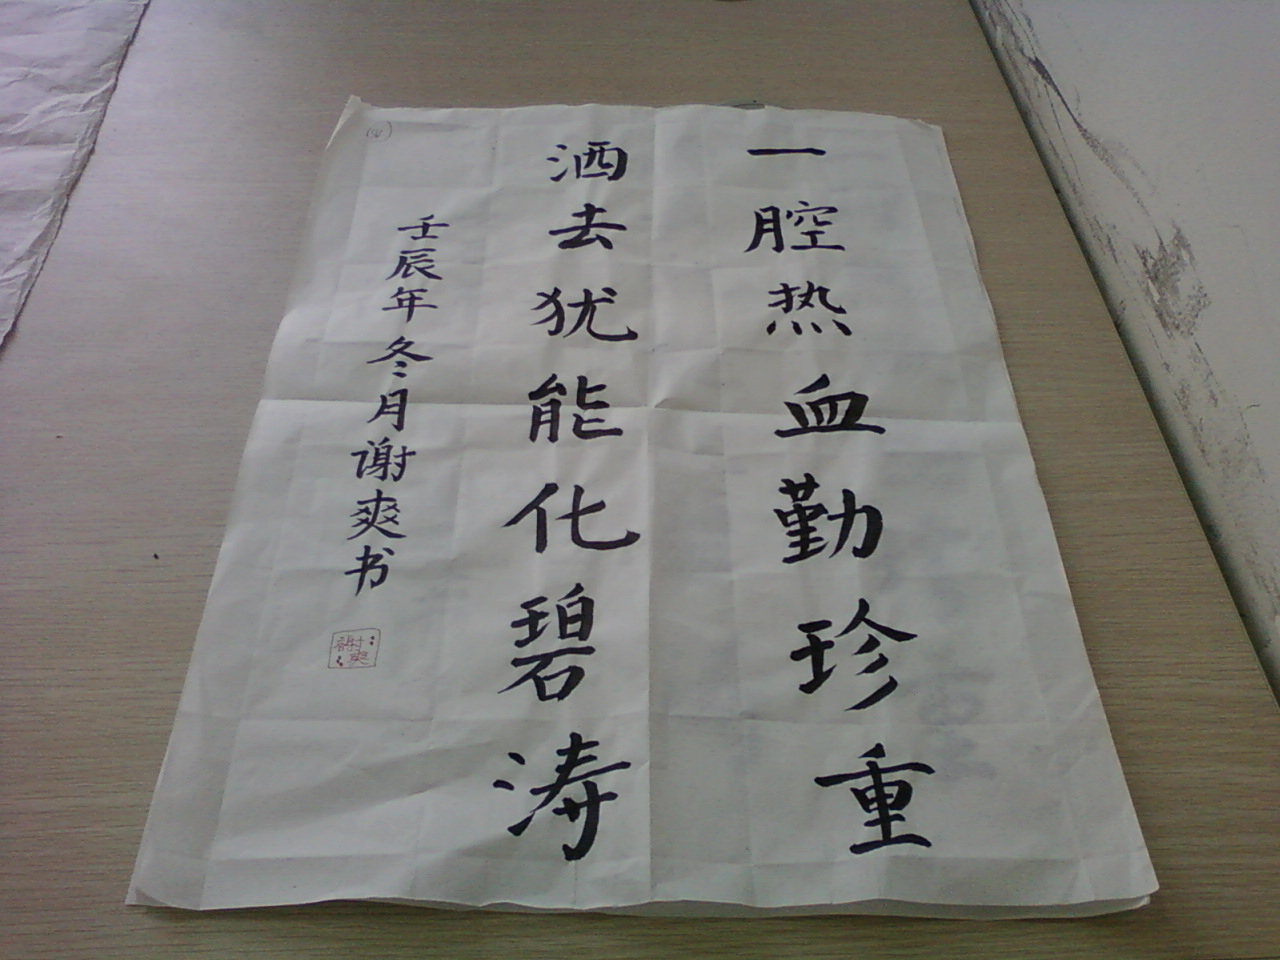 一腔热血勤珍重
洒去犹能化碧涛
壬辰年冬月谢爽书